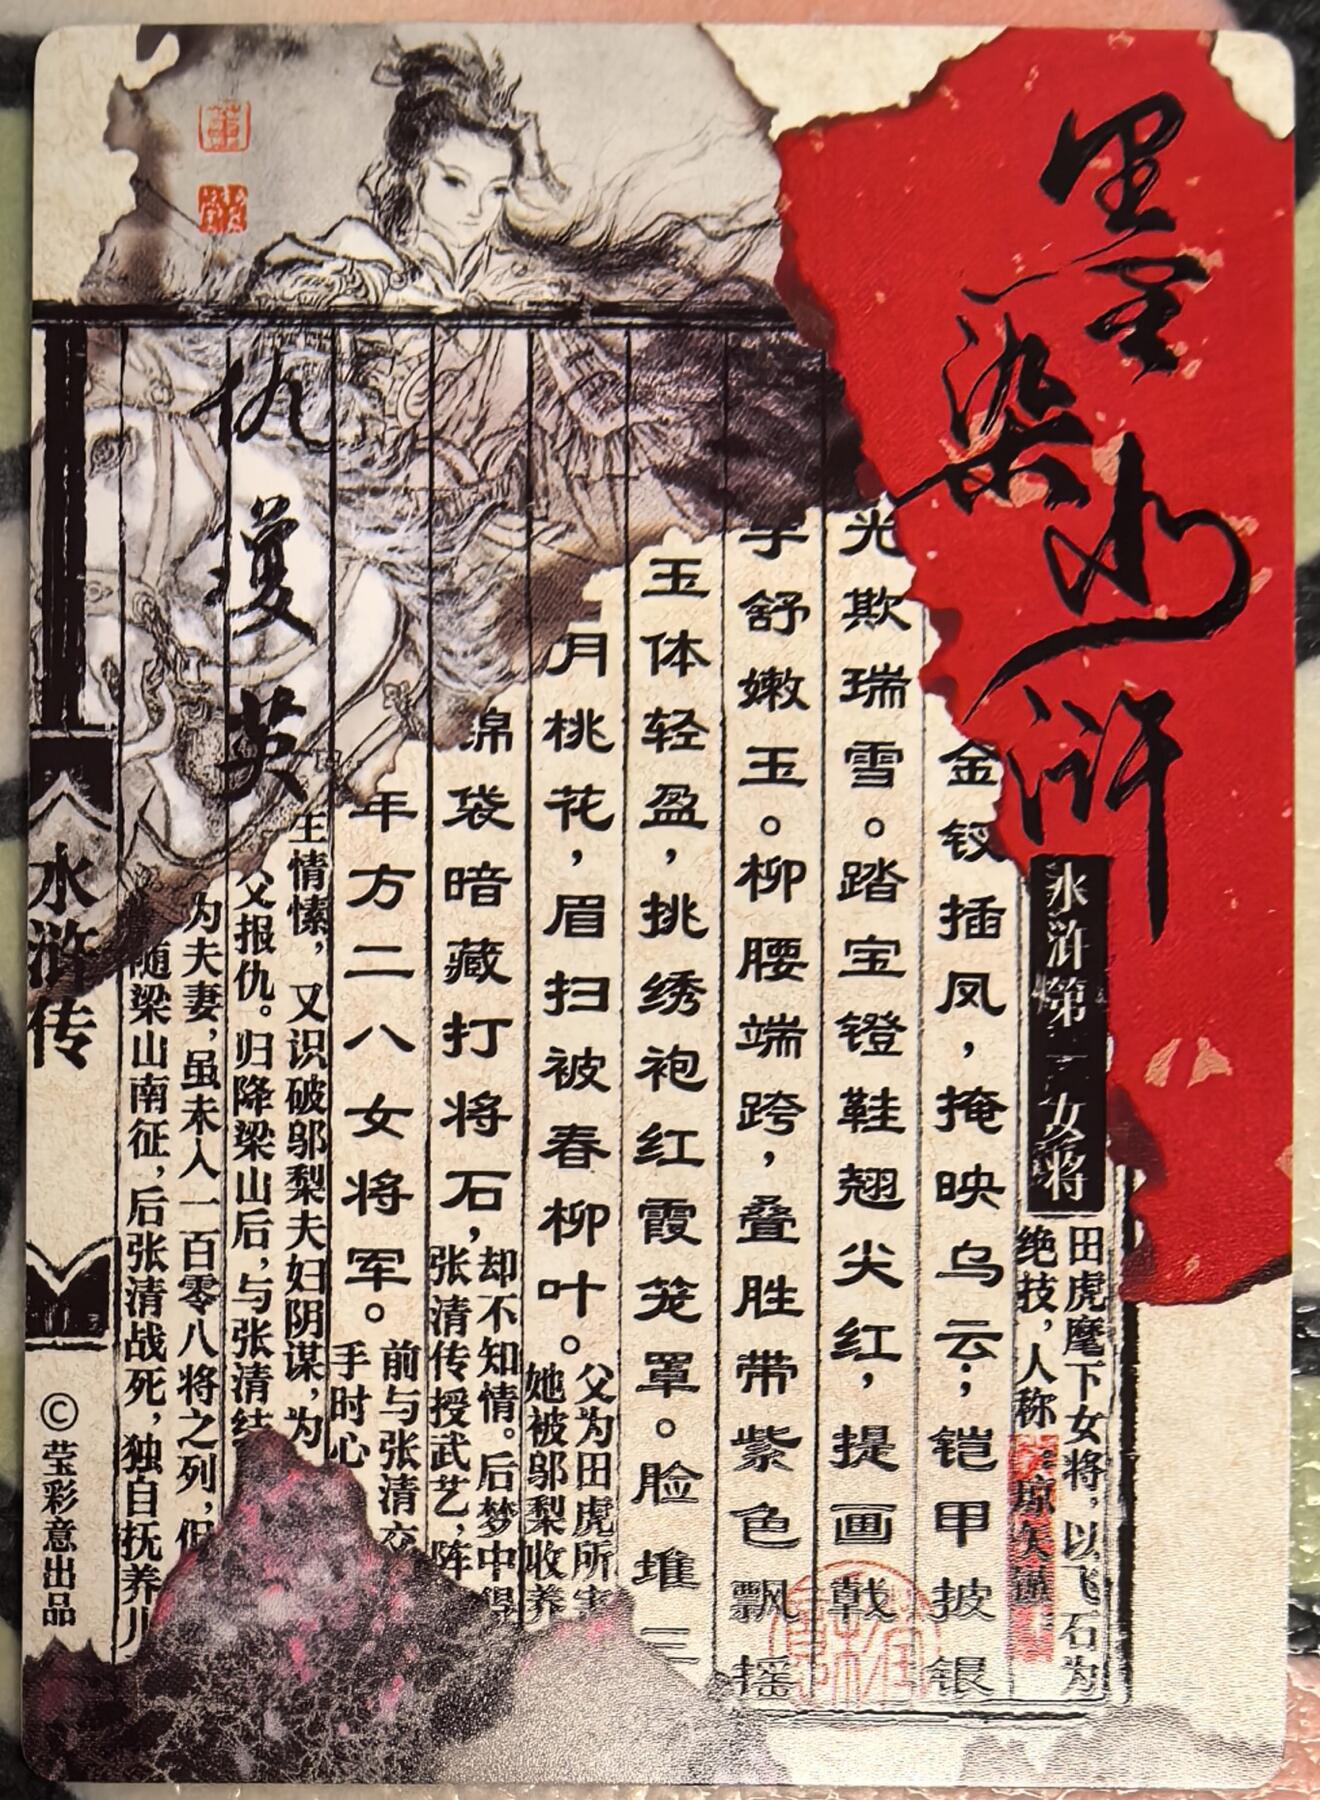 墨染水浒
水浒第女将
田虎麾下女将，以飞石为
绝技，人称琼矢镞
金钗插凤，掩映乌云；铠甲披银
光欺瑞雪。踏宝镫鞋翘尖红，提画戟
手舒嫩玉。柳腰端跨，叠胜带紫色飘摇
玉体轻盈，挑绣袍红霞笼罩。脸堆三
月桃花，眉扫被春柳叶。
父为田虎所害
她被邬梨收养
锦袋暗藏打将石，
却不知情。后梦中得
张清传授武艺，阵
年方二八女将军。
前与张清交
手时心
生情愫，又识破邬梨夫妇阴谋，为
父报仇。归降梁山后，与张清结
为夫妻，虽未入一百零八将之列，但
随梁山南征，后张清战死，独自抚养儿
仇瓊英
水浒传
©莹彩意出品